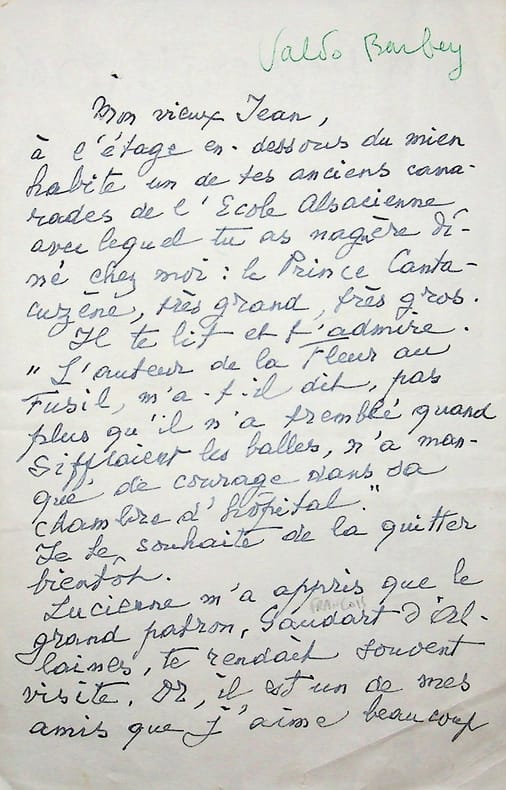 Valdo Barbey
Mon vieux Jean,
à l'étage en-dessous du mien
habite un de tes anciens cama-
rades de l'Ecole Alsacienne
avec lequel tu as nagère dî-
né chez moi : le Prince Canta-
cuzène, très grand, très gros.
Il te lit et t'admire.
"L'auteur de la Fleur au
Fusil, m'a-t-il dit, pas
plus qu'il n'a tremblé quand
sifflaient les balles, n'a man-
qué de courage dans sa
chambre d'hôpital."
Je te souhaite de la quitter
bientôt.
Lucienne m'a appris que le
FRANÇOIS
grand patron, Gaudart d'Al-
laines, te rendait souvent
visite. Or, il est un de mes
amis que j'aime beaucoup